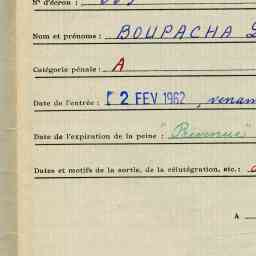 N° d'écrou :
Nom et prénoms : BOUPACHA
Catégorie pénale : A
Date de l'entrée : 2 FEV 1962, venan
Date de l'expiration de la peine : "Prévenue"
Dates et motifs de la sortie, de la réintégration, etc. :
A